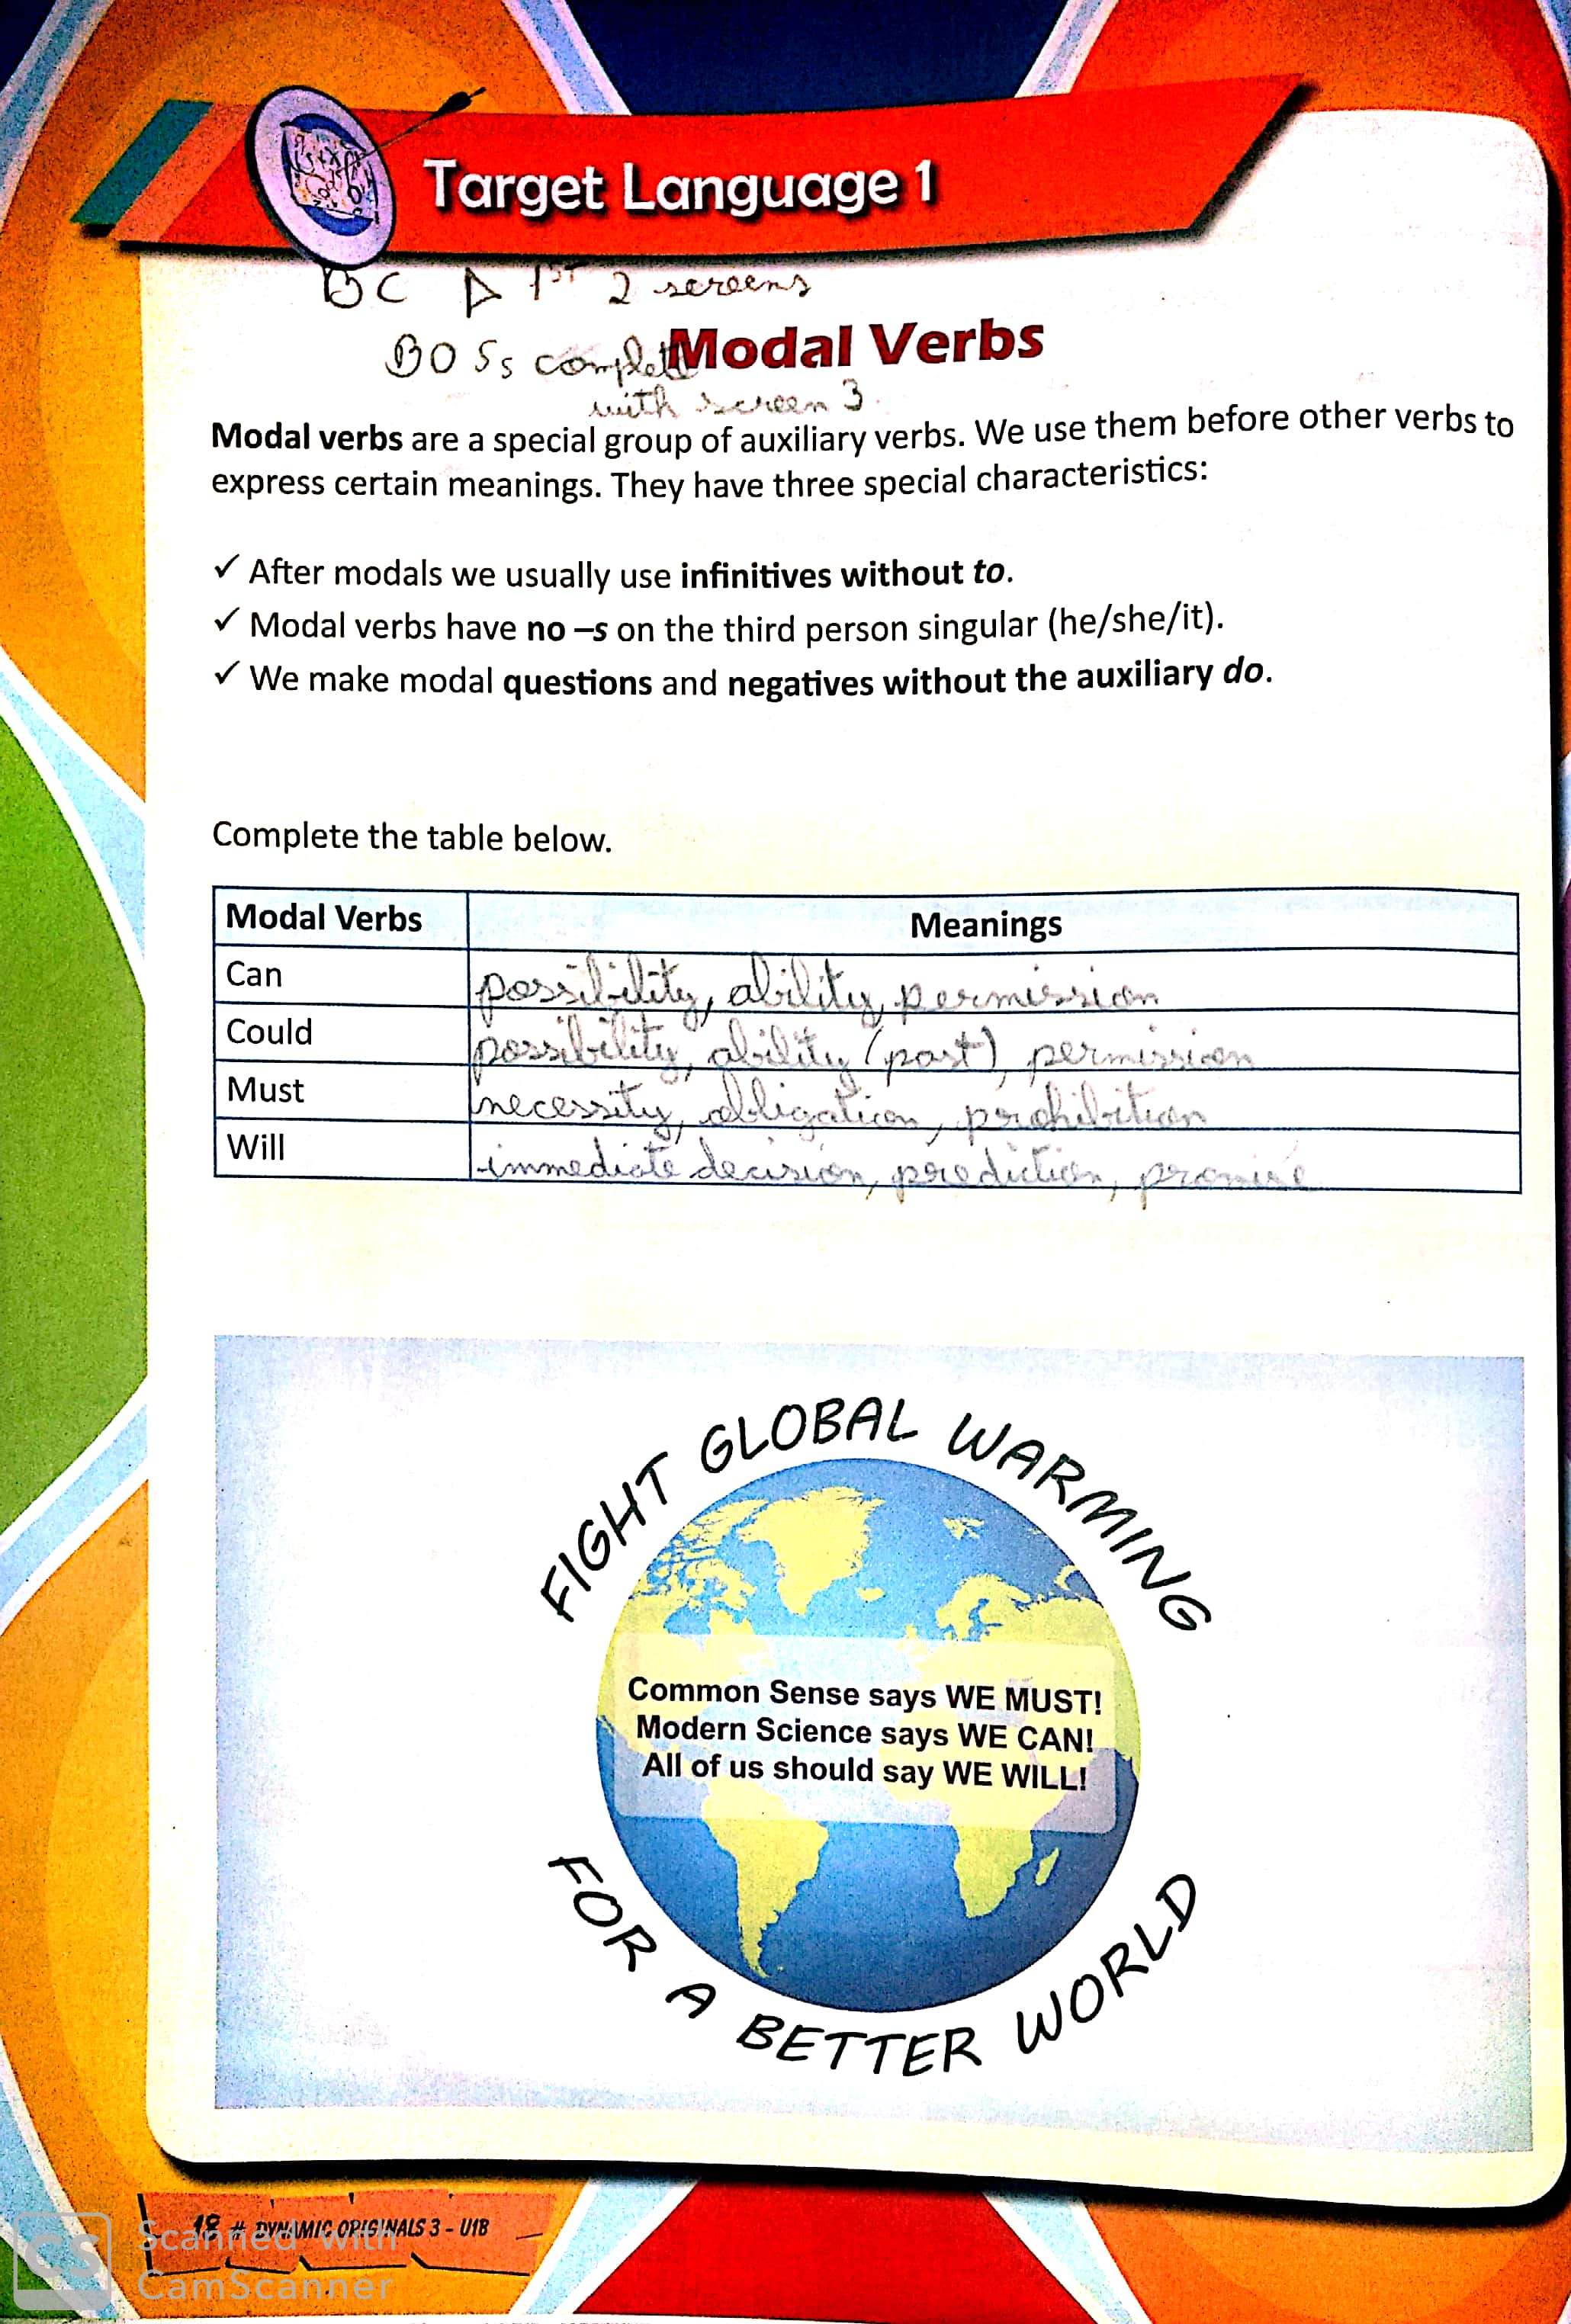 Target Language 1
BC ▷ 1ST 2 screens
BO Ss complete
Modal Verbs
with screen 3.
Modal verbs are a special group of auxiliary verbs. We use them before other verbs to
express certain meanings. They have three special characteristics:
✓ After modals we usually use infinitives without to.
✓ Modal verbs have no –s on the third person singular (he/she/it).
✓ We make modal questions and negatives without the auxiliary do.
Complete the table below.
Modal Verbs Meanings
Can possibility, ability, permission
Could possibility, ability (past), permission
Must necessity, obligation, prohibition
Will immediate decision, prediction, promise
FIGHT GLOBAL WARMING
Common Sense says WE MUST!
Modern Science says WE CAN!
All of us should say WE WILL!
FOR A BETTER WORLD
18 # DYNAMIC ORIGINALS 3 – U1B
CS Scanned with
CamScanner